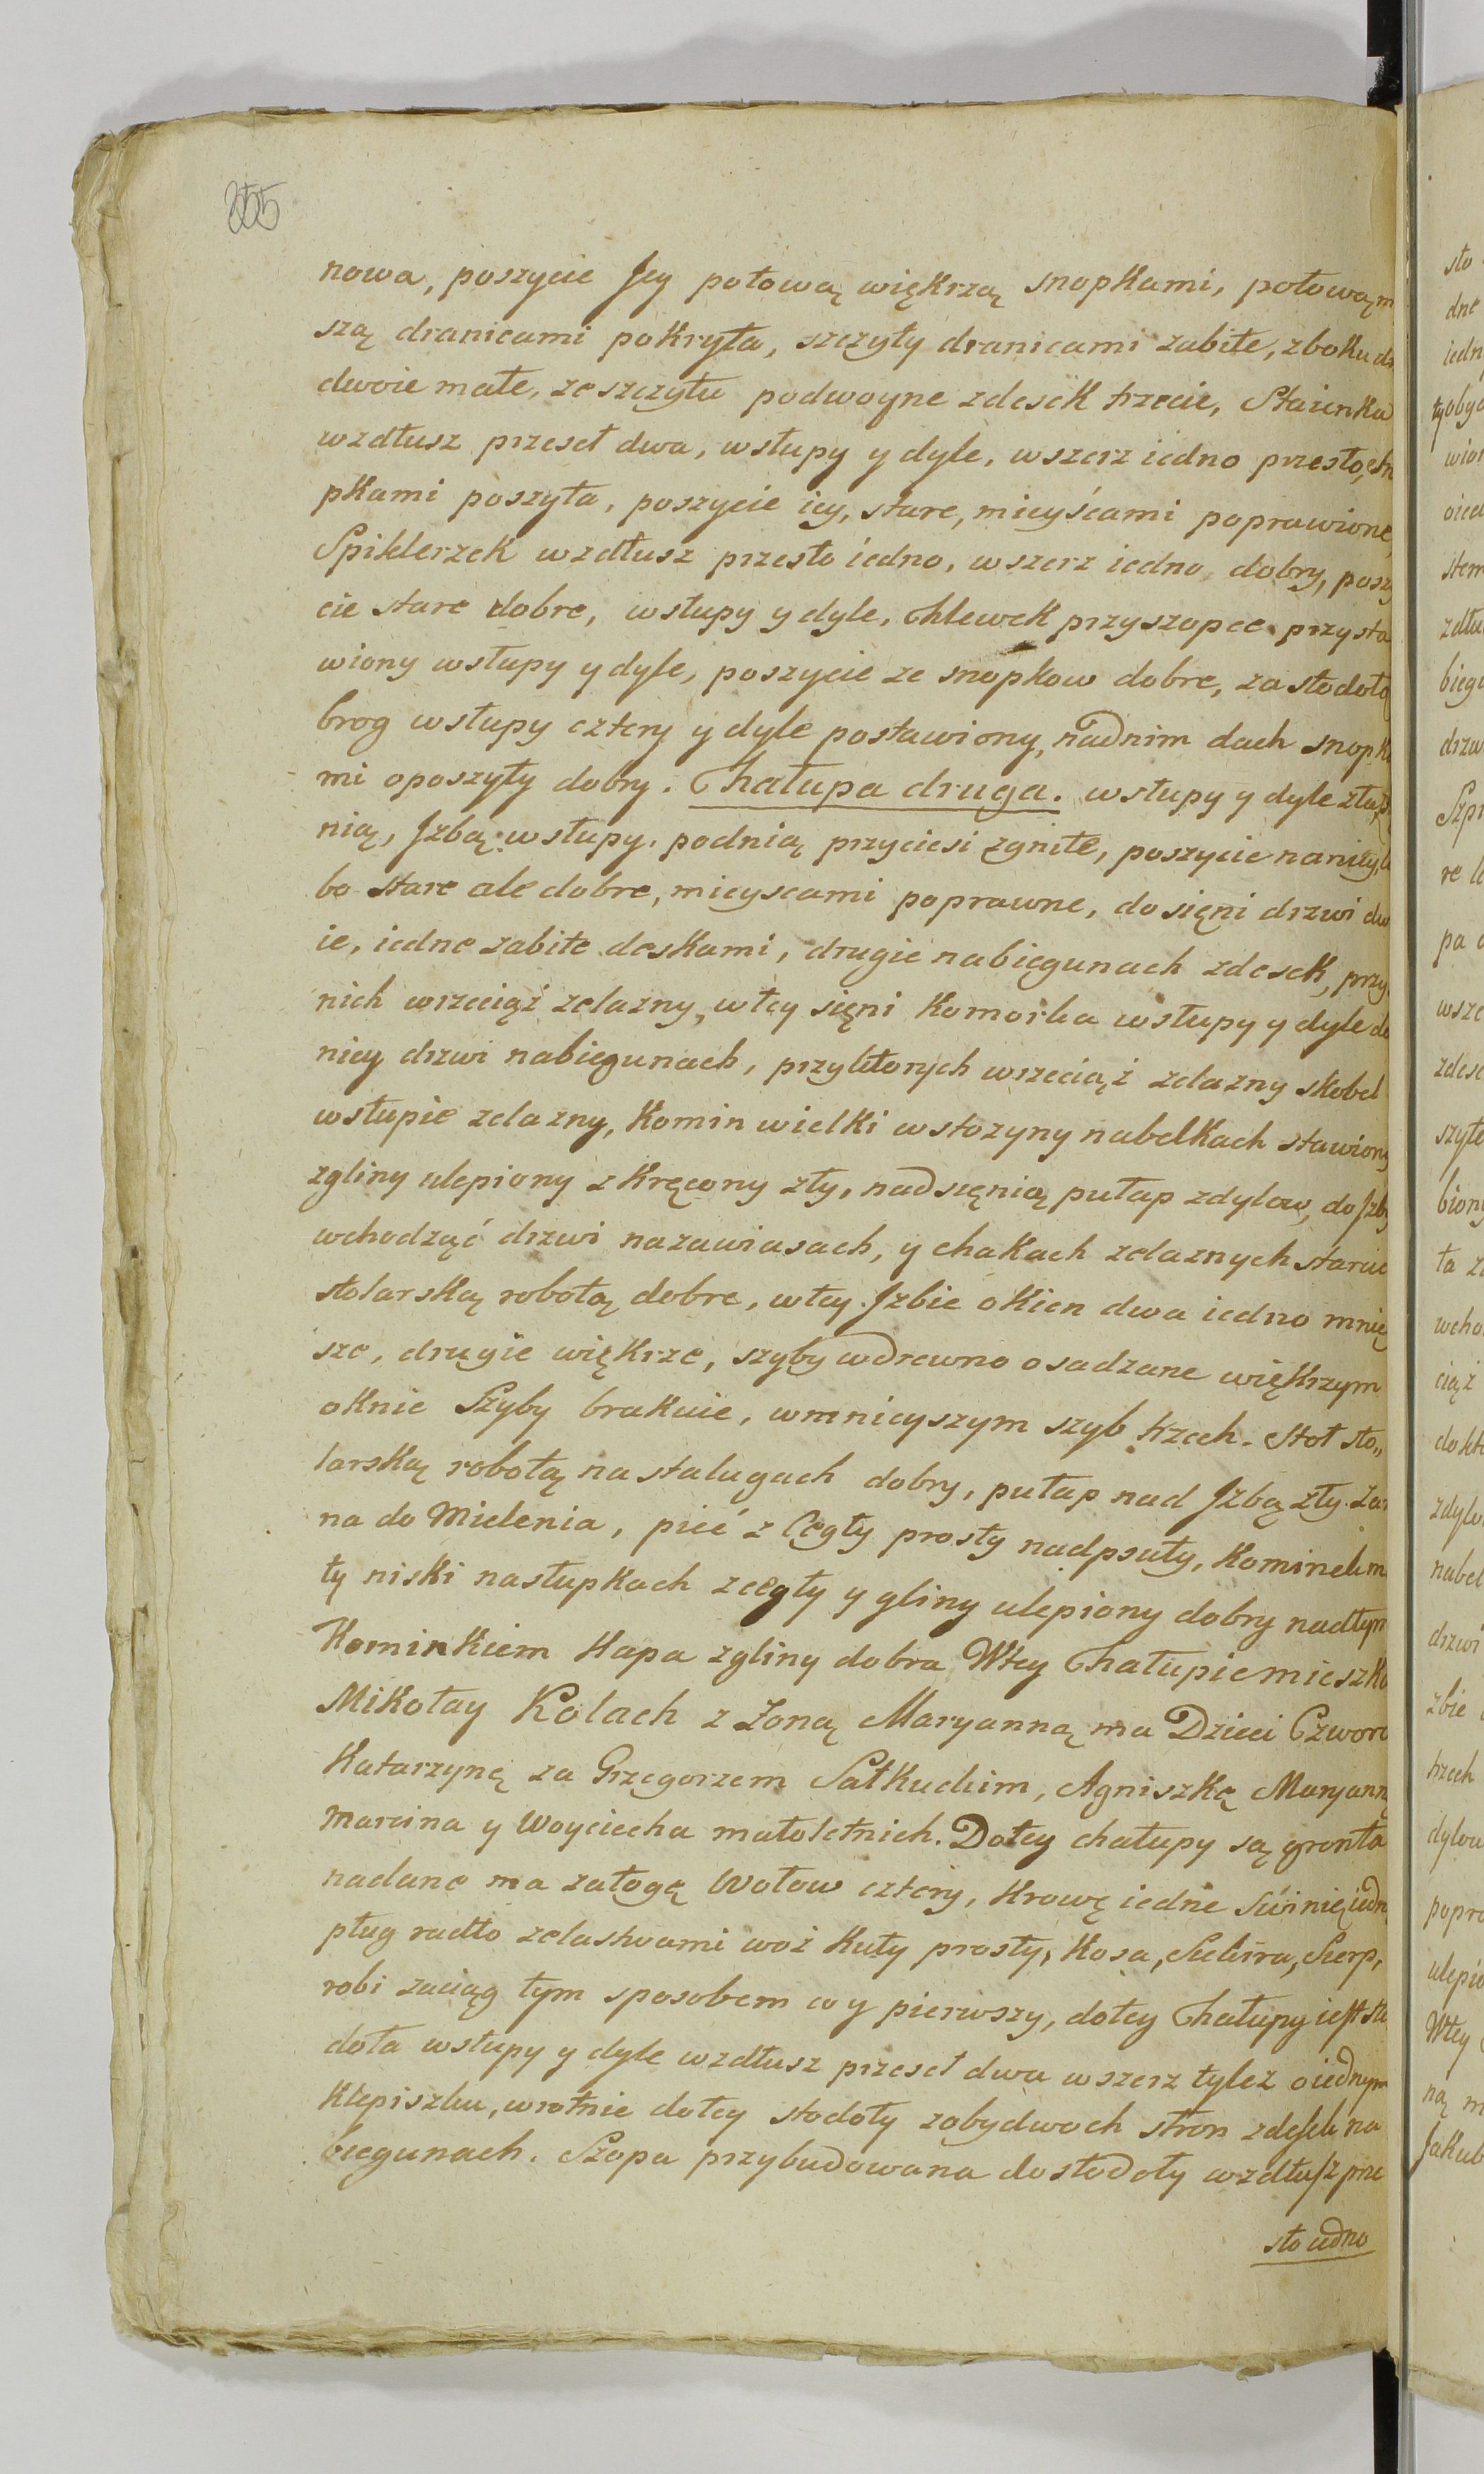 355
nowa, poszycie Jey połową więkrzą snopkami, połową m
szą dranicami pokryta, szczyty dranicami zabite, zboku
dwoie małe, ze szczytu podwoyne zdesek trzecie, Staienka
wzdłusz przeseł dwa, wsłupy y dyle, wszerz iedno przesło,
pkami poszyta, poszycie iey, stare, mieyścami poprawione,
Spiklerzek wzdłusz przesło iedno, wszerz iedno dobry, poszy
cie stare dobre, wsłupy y dyle, Chlewek przyszopce przysta
wiony wsłupy y dyle, poszycie ze snopkow dobre, za stodoło
brog wsłupy cztery y dyle postawiony, nadnim dach snopka
mi oposzyty dobry. Chałupa druga. wsłupy y dyle
nią, Jzbą wsłupy, podnią przyciesi zgniłe, poszycie naniey,
bo stare ale dobre, mieyscami poprawne, do sięni drzwi dwo
ie, iedne zabite deskami, drugie nabiegunach zdesek, przy
nich wrzeciąż zelazny, wtey sięni Komorka wsłupy y dyle do
niey drzwi nabiegunach, przyktorych wrzeciąż zelazny skobel
wsłupie zelazny, Komin wielki wstozyny nabelkach stawiony
zgliny ulepiony zkręcony zły, nad sięnią pułap zdylow, do Jzby
wchodząć drzwi nazawiasach, y chakach zelaznych
stolarską robotą dobre, wtey Jzbie okien dwa iedno mniey
sze, drugie więkrze, szyby wdrewno osadzane więkrzym
oknie Szyby brakuie, wmnieyszym szyb trzech. Stoł sto„
larską robotą na stalugach dobry, pułap nad Jzbą zły. Zar
na do Mielenia, pieć z Cegły prosty nadpsuty, Kominek m
ty niski nasłupkach zcegły y gliny ulepiony dobry nadtym
Kominkiem Kapa zgliny dobra Wtey Chałupie mieszka
Mikołay Kolach z Zoną Maryanną ma Dzieci Czworo
Katarzynę za Grzegorzem Sałkuckim, Agniszkę Maryannę
Marcina y Woyciecha małoletnich. Dotey chałupy są gronta
nadane ma załogę Wołow cztery, Krowę iedne Swinię iedn
pług radło zelastwami woz kuty prosty, Kosa, Siekira, Sierp,
robi zaciąg tym sposobem co y pierwszy, dotey Chałupy iest sto
doła wsłupy y dyle wzdłusz przeseł dwa wszerz tylez oiednym
klepiszku, wrotnie dotey stodoły zobydwoch stron zdesek na
biegunach. Szopa przybudowana dostodoły wzdłusz prze
sło iedno